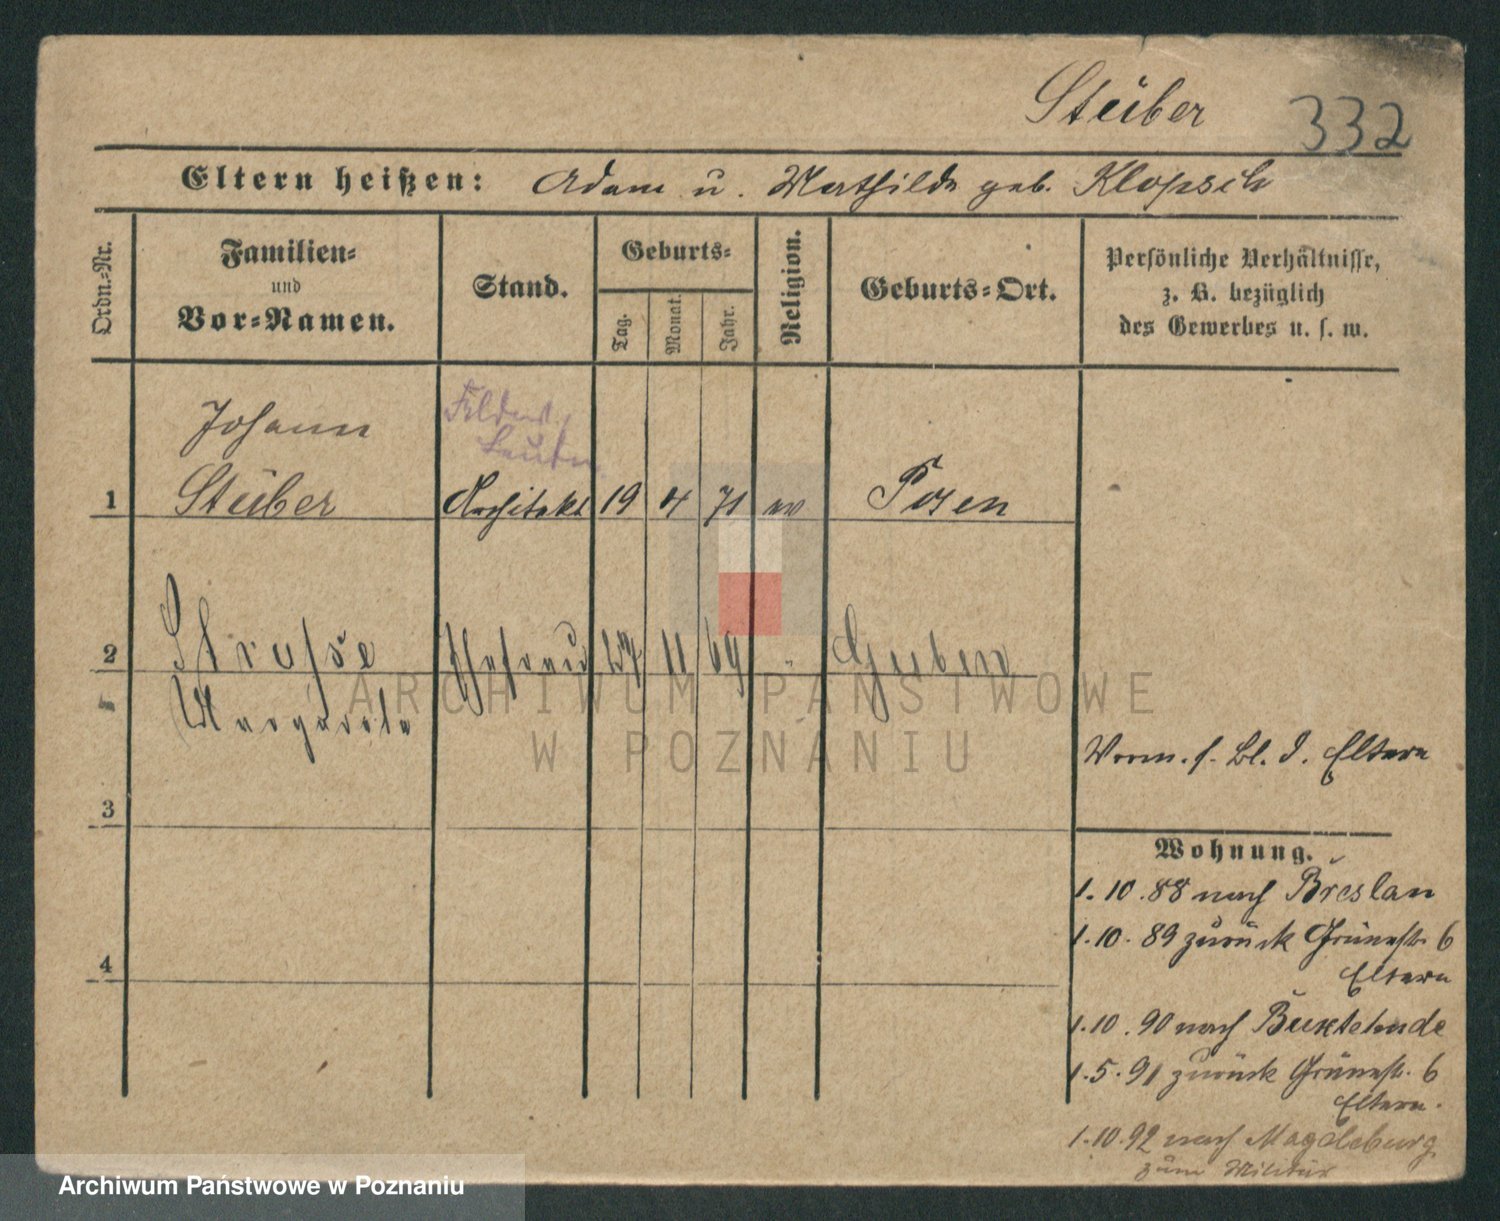 Stüber 332
Eltern heißen: Adam u. Mathilde geb. Klopsch
Ordn.-Nr.
Familien-
und
Vor-Namen.
Stand.
Geburts-
Tag.
Monat.
Jahr.
Religion.
Geburts-Ort.
Persönliche Verhältnisse,
z. B. bezüglich
des Gewerbes u. s. w.
Johann
1 Stüber Architekt 19 4 71 ev Posen
2 Strusse Ehefrau 27 11 69 " Guben
Margarete
ARCHIWUM PAŃSTWOWE
W POZNANIU
Vorm. s. Bl. d. Eltern
3
Wohnung.
1.10.88 nach Breslau
1.10.89 zurück Grünestr. 6
Eltern
4
1.10.90 nach Buxtehude
1.5.91 zurück Grünestr. 6
Eltern.
1.10.92 nach Magdeburg
zum Militär
Archiwum Państwowe w Poznaniu